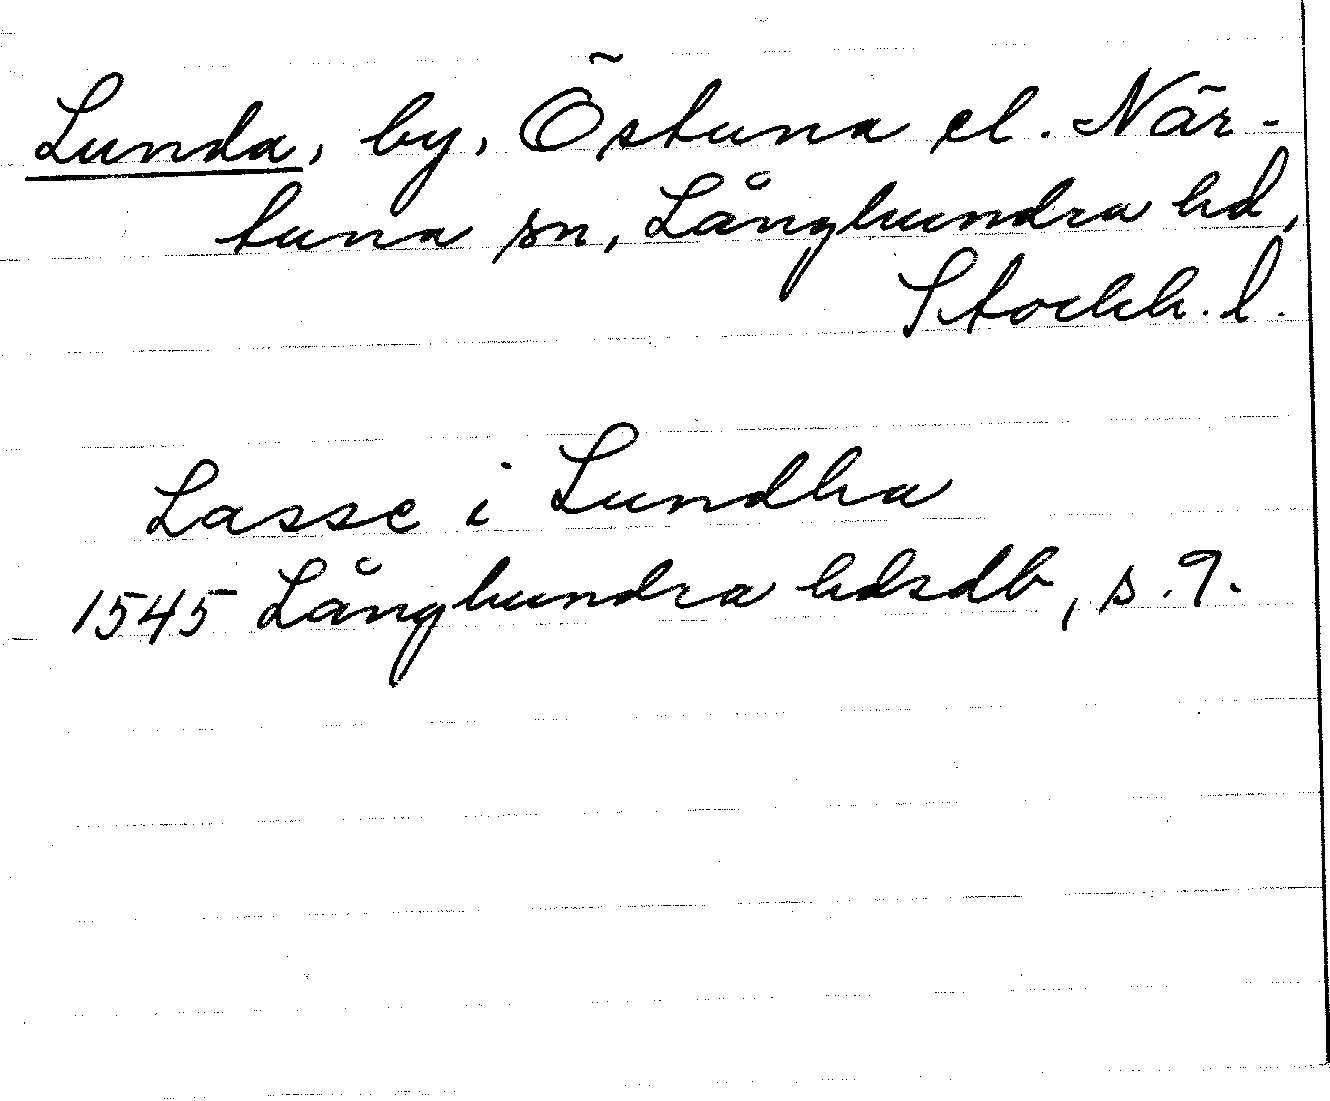 Lunda, by, Östuna el. När-
tuna sn, Långhundra hd,
Stockh. l.
Lasse i Lundha
1545 Långhundra hdsdb, s. 9.